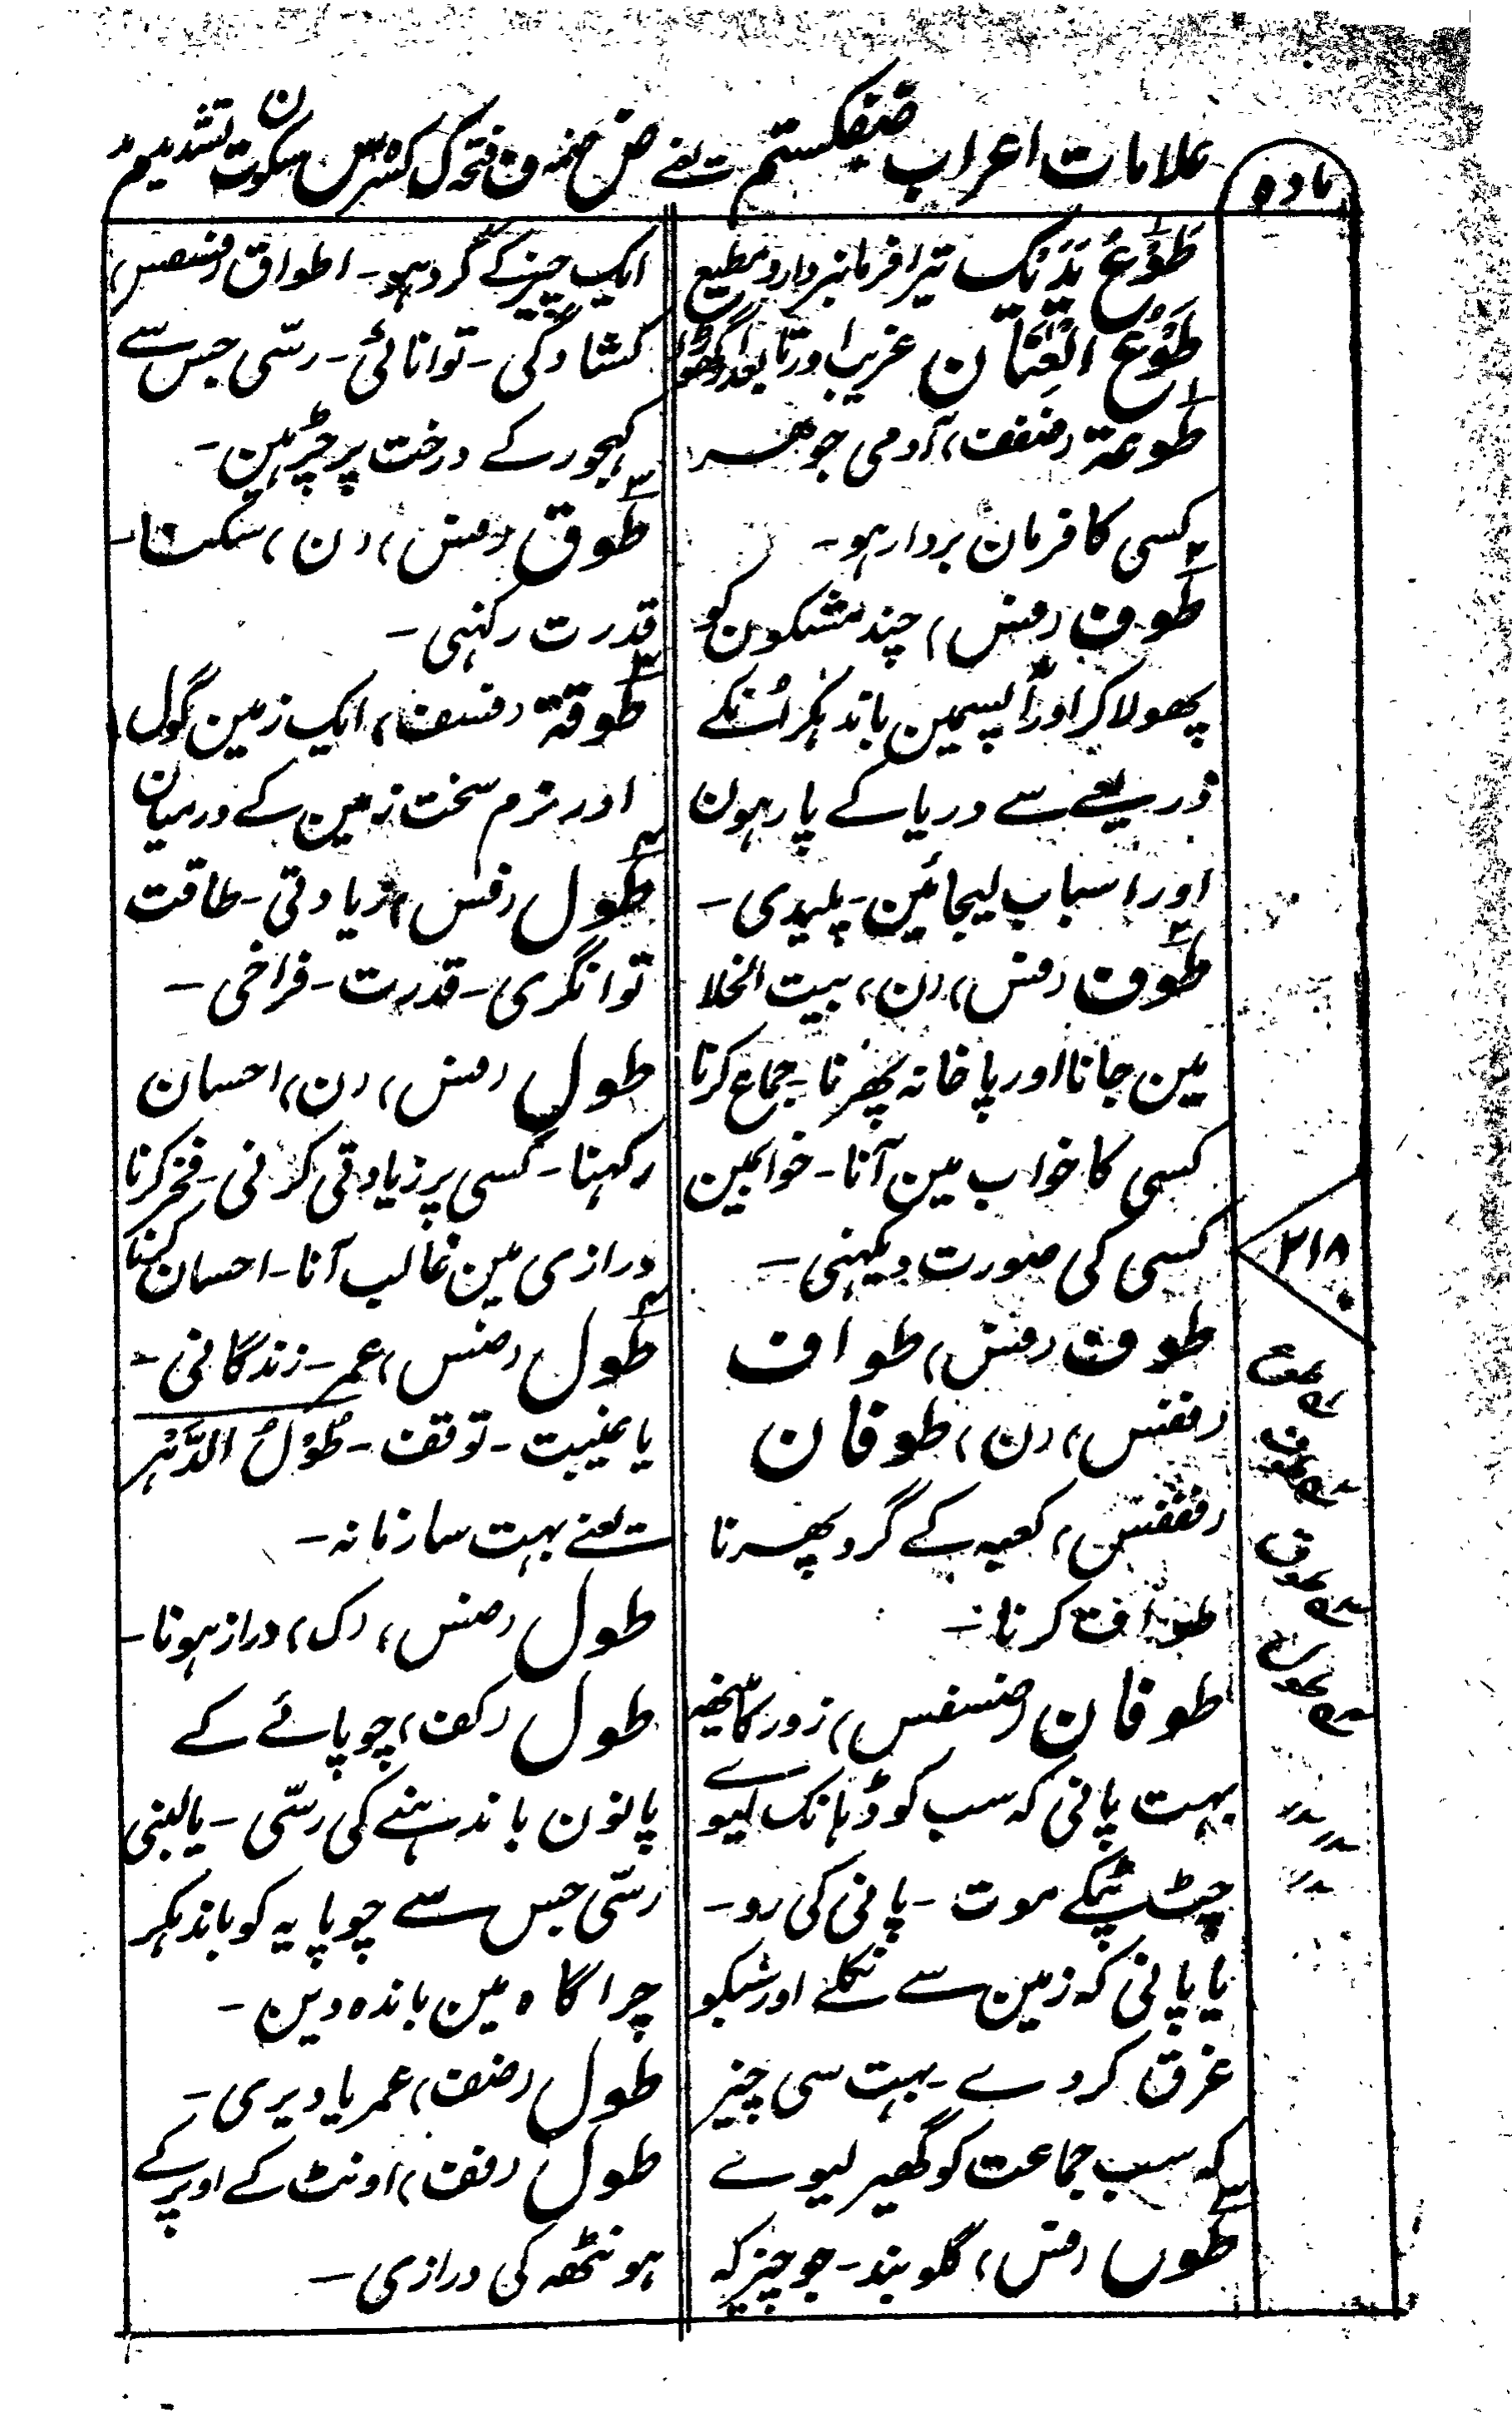 علامات اعراب ضفکستم یعنے ض ضمہ ف فتحہ ک کسرہ س سکون ت تشدید م مد
مادہ
طَوْعُ یَدَیْکَ تیرا فرمانبردار و مطیع
طَوْعُ الْعِنَان غریب اور تابعدار گھوڑا
طوعة (ضففت) آدمی جو ہر
کسی کا فرمان بردار ہو۔
طوف (فس) چند مشکون کو
پھولا کر اور آپسمین باندہکر اُنکے
ذریعے سے دریا کے پار ہون
اور اسباب لیجائین۔ پلیدی۔
طوف (فس) (ن) بیت الخلا
مین جانا اور پاخانہ پھرنا۔ جماع کرنا
کسی کا خواب مین آنا۔ خوابمین
کسی کی صورت دیکہنی۔
طوف (فس) طواف
(ففس) (ن) طوفان
(فففس) کعبہ کے گرد پھرنا
طواف کرنا۔
طوفان (ضسفس) زور کا مینھ
بہت پانی کہ سب کو ڈہانک لیوے
چٹ پٹکے موت۔ پانی کی رو۔
یا پانی کہ زمین سے نکلے اور سبکو
غرق کردے۔ بہت سی چیز
کہ سب جماعت کو گھیر لیوے
طوق (فس) گلوبند۔ جو چیز کہ
ایک چیز کے گرد ہو۔ اطواق
کشادگی۔ توانائی۔ رسّی جس سے
کہجور کے درخت پر چڑہین۔
طوق (فس) (ن) سکنا۔
قدرت رکہنی۔
طوقة (فسف) ایک زمین گول
اور نرم سخت زمین کے درمیان
طول (فس) زیادتی۔ طاقت
توانگری۔ قدرت۔ فراخی۔
طول (فس) (ن) احسان
رکہنا۔ کسی پر زیادتی کرنی۔ فخر کرنا
درازی مین غالب آنا۔ احسان کہنا
طول (ضس) عمر۔ زندگانی۔
یا غیبت۔ توقف۔ طُوْلُ الدَّہْر
یعنے بہت سا زمانہ۔
طول (ضس) (ک) دراز ہونا۔
طول (کف) چوپائے کے
پانون باندہنے کی رسّی۔ یا لنبی
رسّی جس سے چوپایہ کو باندہکر
چراگاہ مین باندہ دین۔
طول (ضف) عمر یا دیری۔
طول (فف) اونٹ کے اوپر کے
ہونٹھ کی درازی۔
۲۱۸